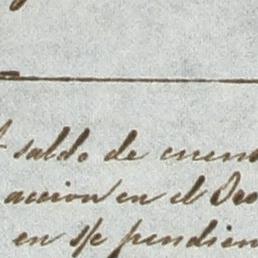 saldo de cuen
accion en el
en s/c pendien